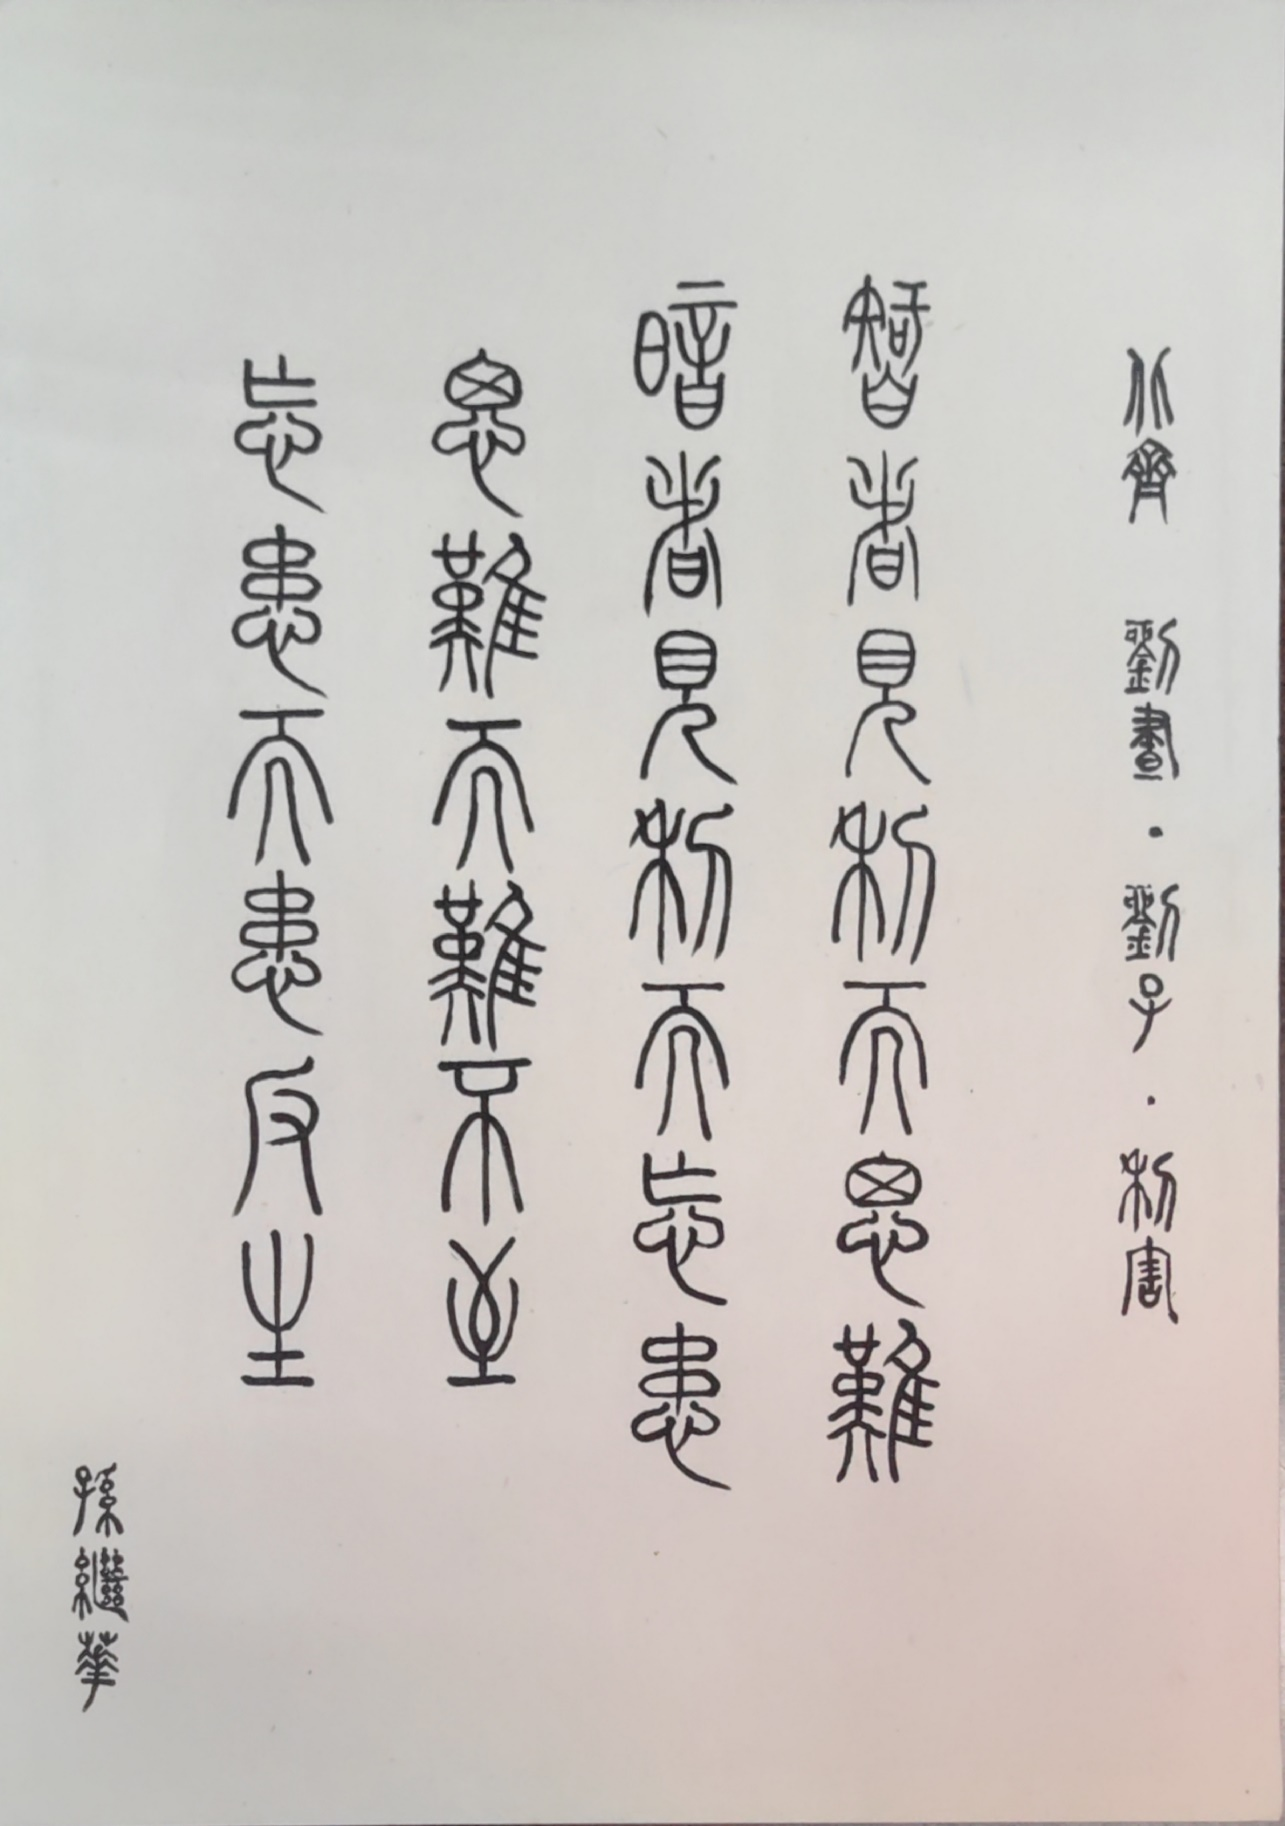 北齊 劉晝·劉子·利害
智者見利而思難
暗者見利而忘患
思難而難不至
忘患而患反生
孫繼華